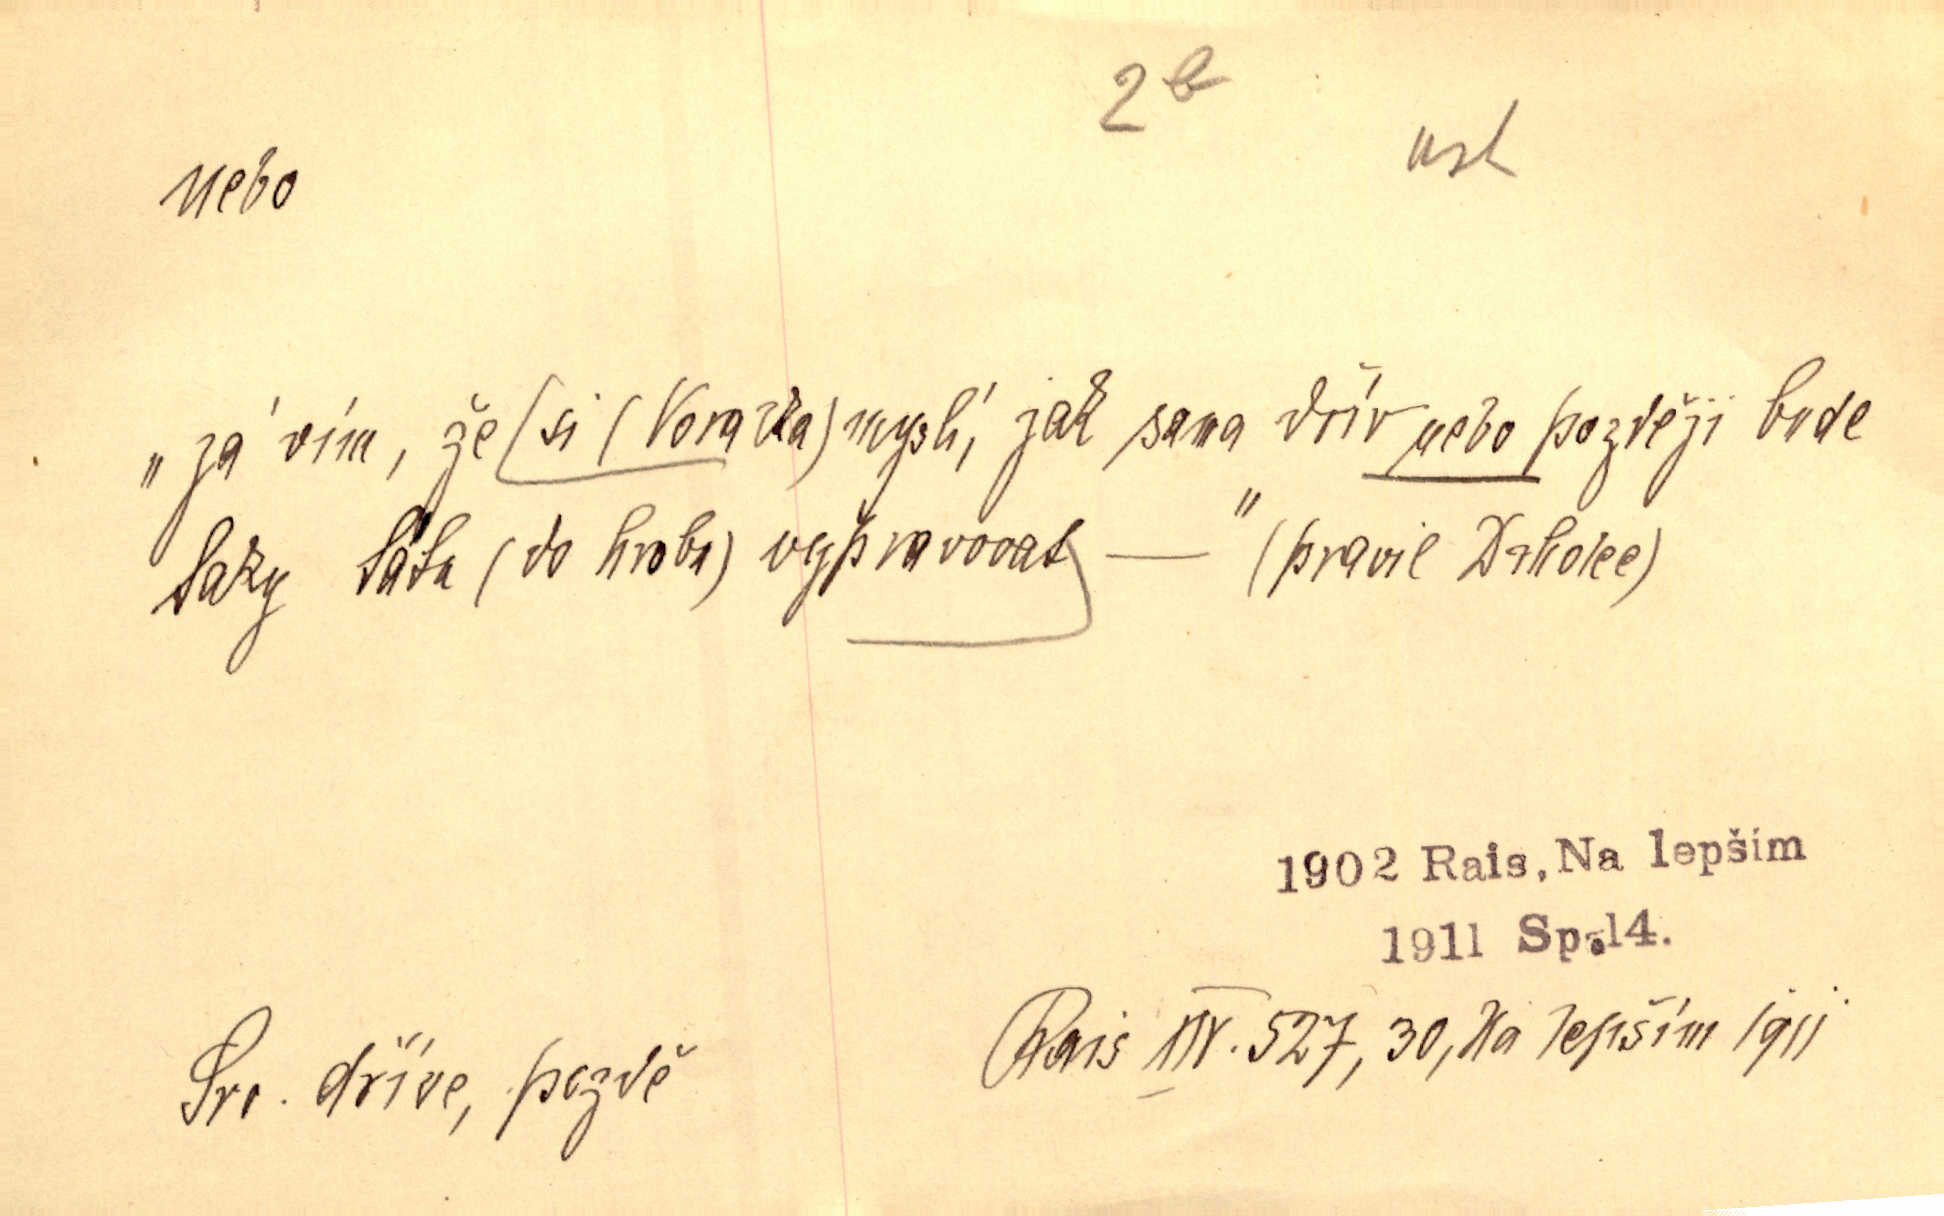 2b
nebo
„já vím, že (si (Voračka) myslí, jak sama dřív nebo později bude
taky tátu (do hrobu) vypravovat — " (pravil
1902 Rais, Na lepším
1911 Sp.14.
Srv. dříve, pozdě
Rais XIV. 527, 30, Na lepším 1911